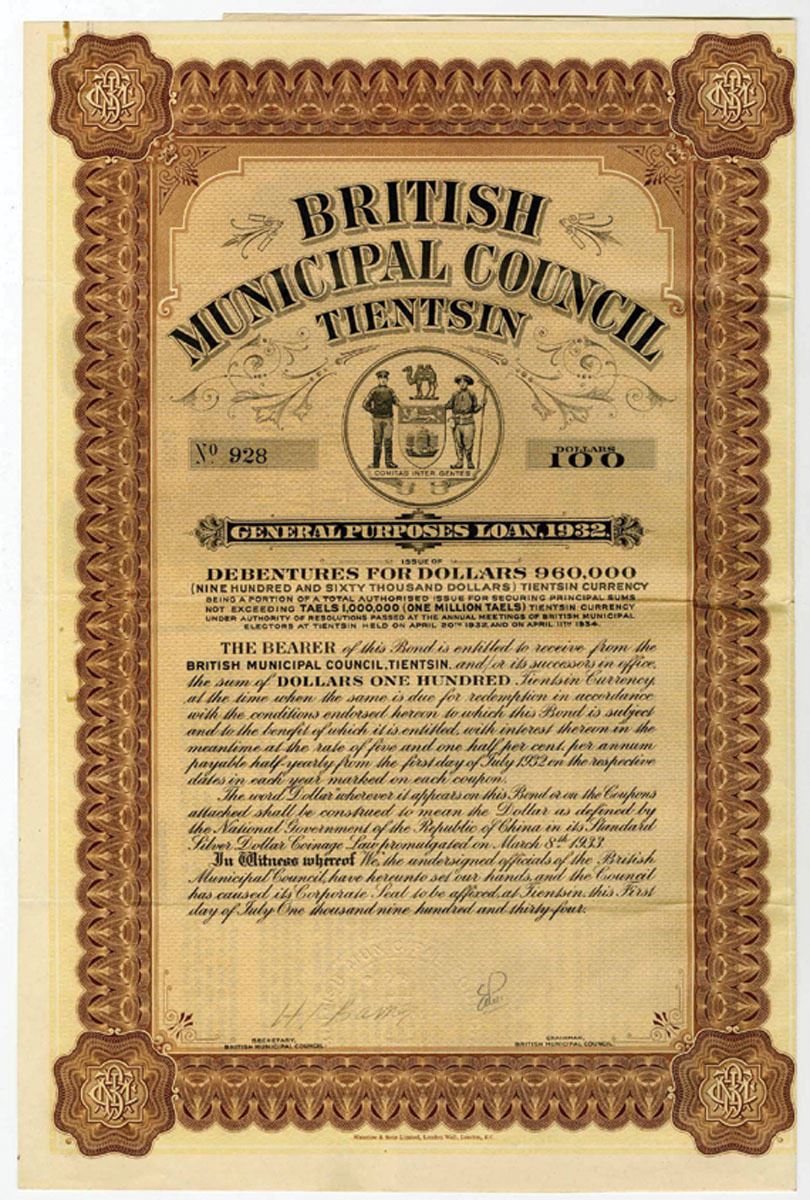 BRITISH
MUNICIPAL COUNCIL
TIENTSIN
COMITAS INTER GENTES
No 928
DOLLARS
100
GENERAL PURPOSES LOAN, 1932
ISSUE OF
DEBENTURES FOR DOLLARS 960,000
(NINE HUNDRED AND SIXTY THOUSAND DOLLARS) TIENTSIN CURRENCY
BEING A PORTION OF A TOTAL AUTHORISED ISSUE FOR SECURING PRINCIPAL SUMS
NOT EXCEEDING TAELS 1,000,000 (ONE MILLION TAELS) TIENTSIN CURRENCY
UNDER AUTHORITY OF RESOLUTIONS PASSED AT THE ANNUAL MEETINGS OF BRITISH MUNICIPAL
ELECTORS AT TIENTSIN HELD ON APRIL 20TH 1932, AND ON APRIL 11TH 1934.
THE BEARER of this Bond is entitled to receive from the
BRITISH MUNICIPAL COUNCIL, TIENTSIN, and/or its successors in office,
the sum of DOLLARS ONE HUNDRED Tientsin Currency,
at the time when the same is due for redemption in accordance
with the conditions endorsed hereon to which this Bond is subject
and to the benefit of which it is entitled, with interest thereon in the
meantime at the rate of five and one half per cent. per annum
payable half-yearly from the first day of July 1932 on the respective
dates in each year marked on each coupon.
The word "Dollar" wherever it appears on this Bond or on the Coupons
attached shall be construed to mean the Dollar as defined by
the National Government of the Republic of China in its Standard
Silver Dollar Coinage Law promulgated on March 8th 1933.
In Witness whereof We, the undersigned officials of the British
Municipal Council, have hereunto set our hands, and the Council
has caused its Corporate Seal to be affixed, at Tientsin, this First
day of July One thousand nine hundred and thirty-four.
SECRETARY,
BRITISH MUNICIPAL COUNCIL.
CHAIRMAN,
BRITISH MUNICIPAL COUNCIL.
Waterlow & Sons Limited, London Wall, London, E.C.